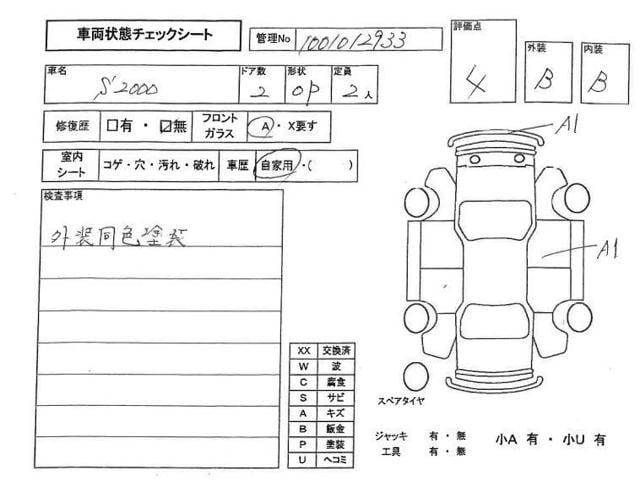 車両状態チェックシート
管理No 1001012933
評価点 4
外装 B
内装 B
車名 S2000
ドア数 2
形状 OP
定員 2人
修復歴 □有・☑無
フロントガラス A・X要す
室内シート コゲ・穴・汚れ・破れ
車歴 自家用・( )
検査事項
外装同色塗装
A1
A1
XX 交換済
W 波
C 腐食
S サビ
A キズ
B 鈑金
P 塗装
U ヘコミ
スペアタイヤ
ジャッキ 有・無
工具 有・無
小A 有・小U 有